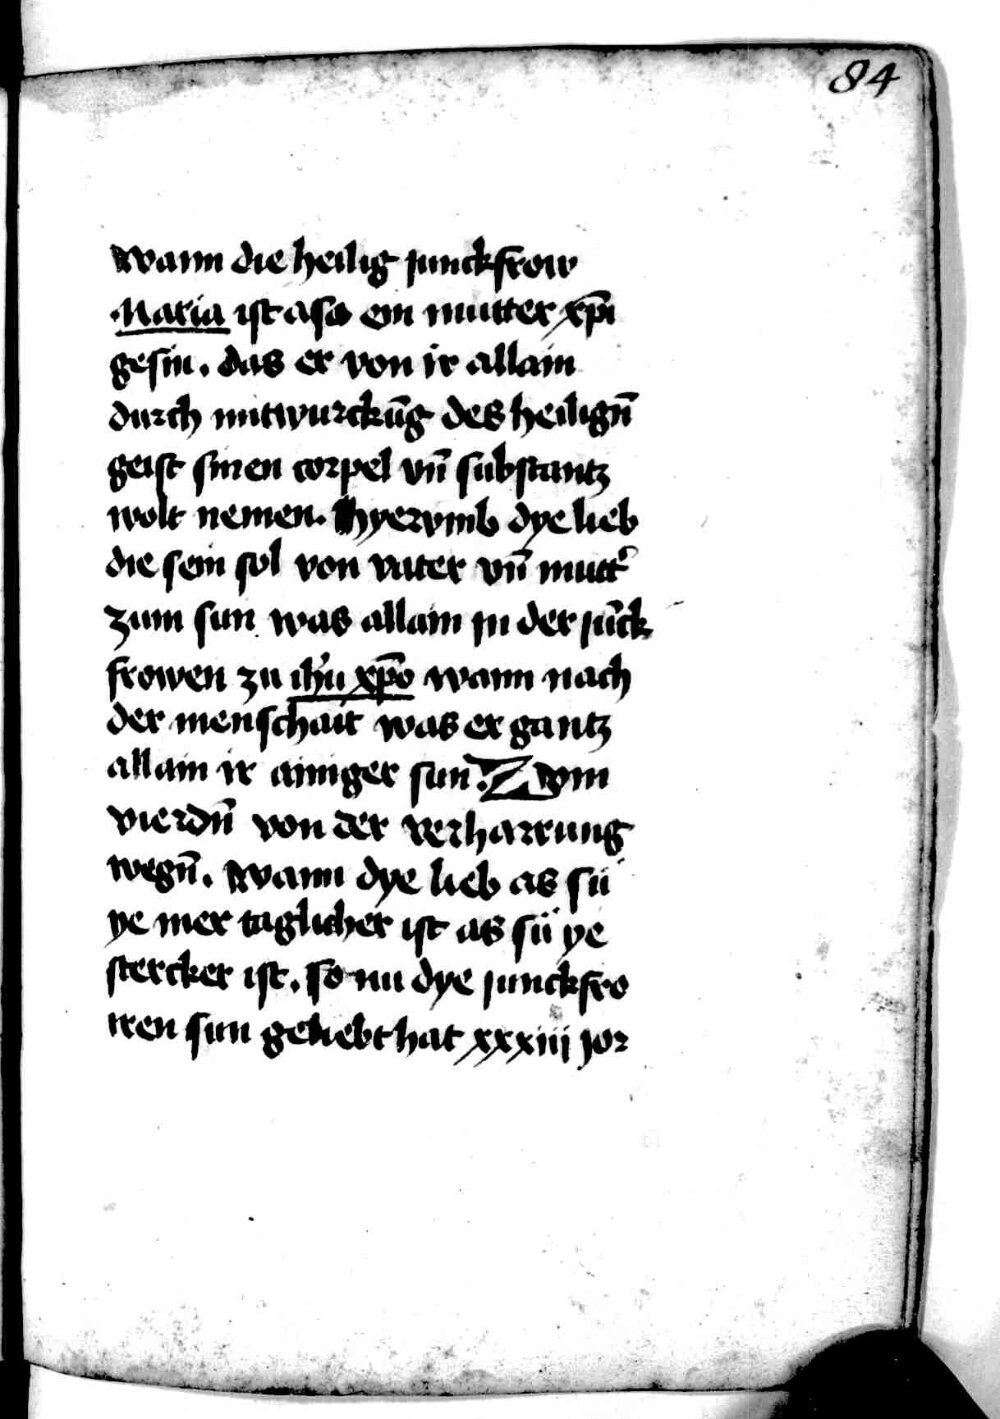 84
Wann die heilig junckfrow
Maria ist aso ein mutter xp̄i
gesin. das er von ir allain
durch mitwurckūg des heilign̄
geist sinen corpel vn̄ substantz
wolt nemen. hyervmb dye lieb
die sein sol von vater vn̄ mutt᷑
zum sun was allain jn der jūck
frowen zu ih̄u xp̄o wann nach
der menschait was er gantz
allain ir ainiger sun. Zvm
vierdn̄ von der verharrung
wegn̄. Wann dye lieb as sü
ye mer taglicher ist as sü ye
stercker ist. so nu dye junckfro
iren sun geliebt hat xxxiij jor